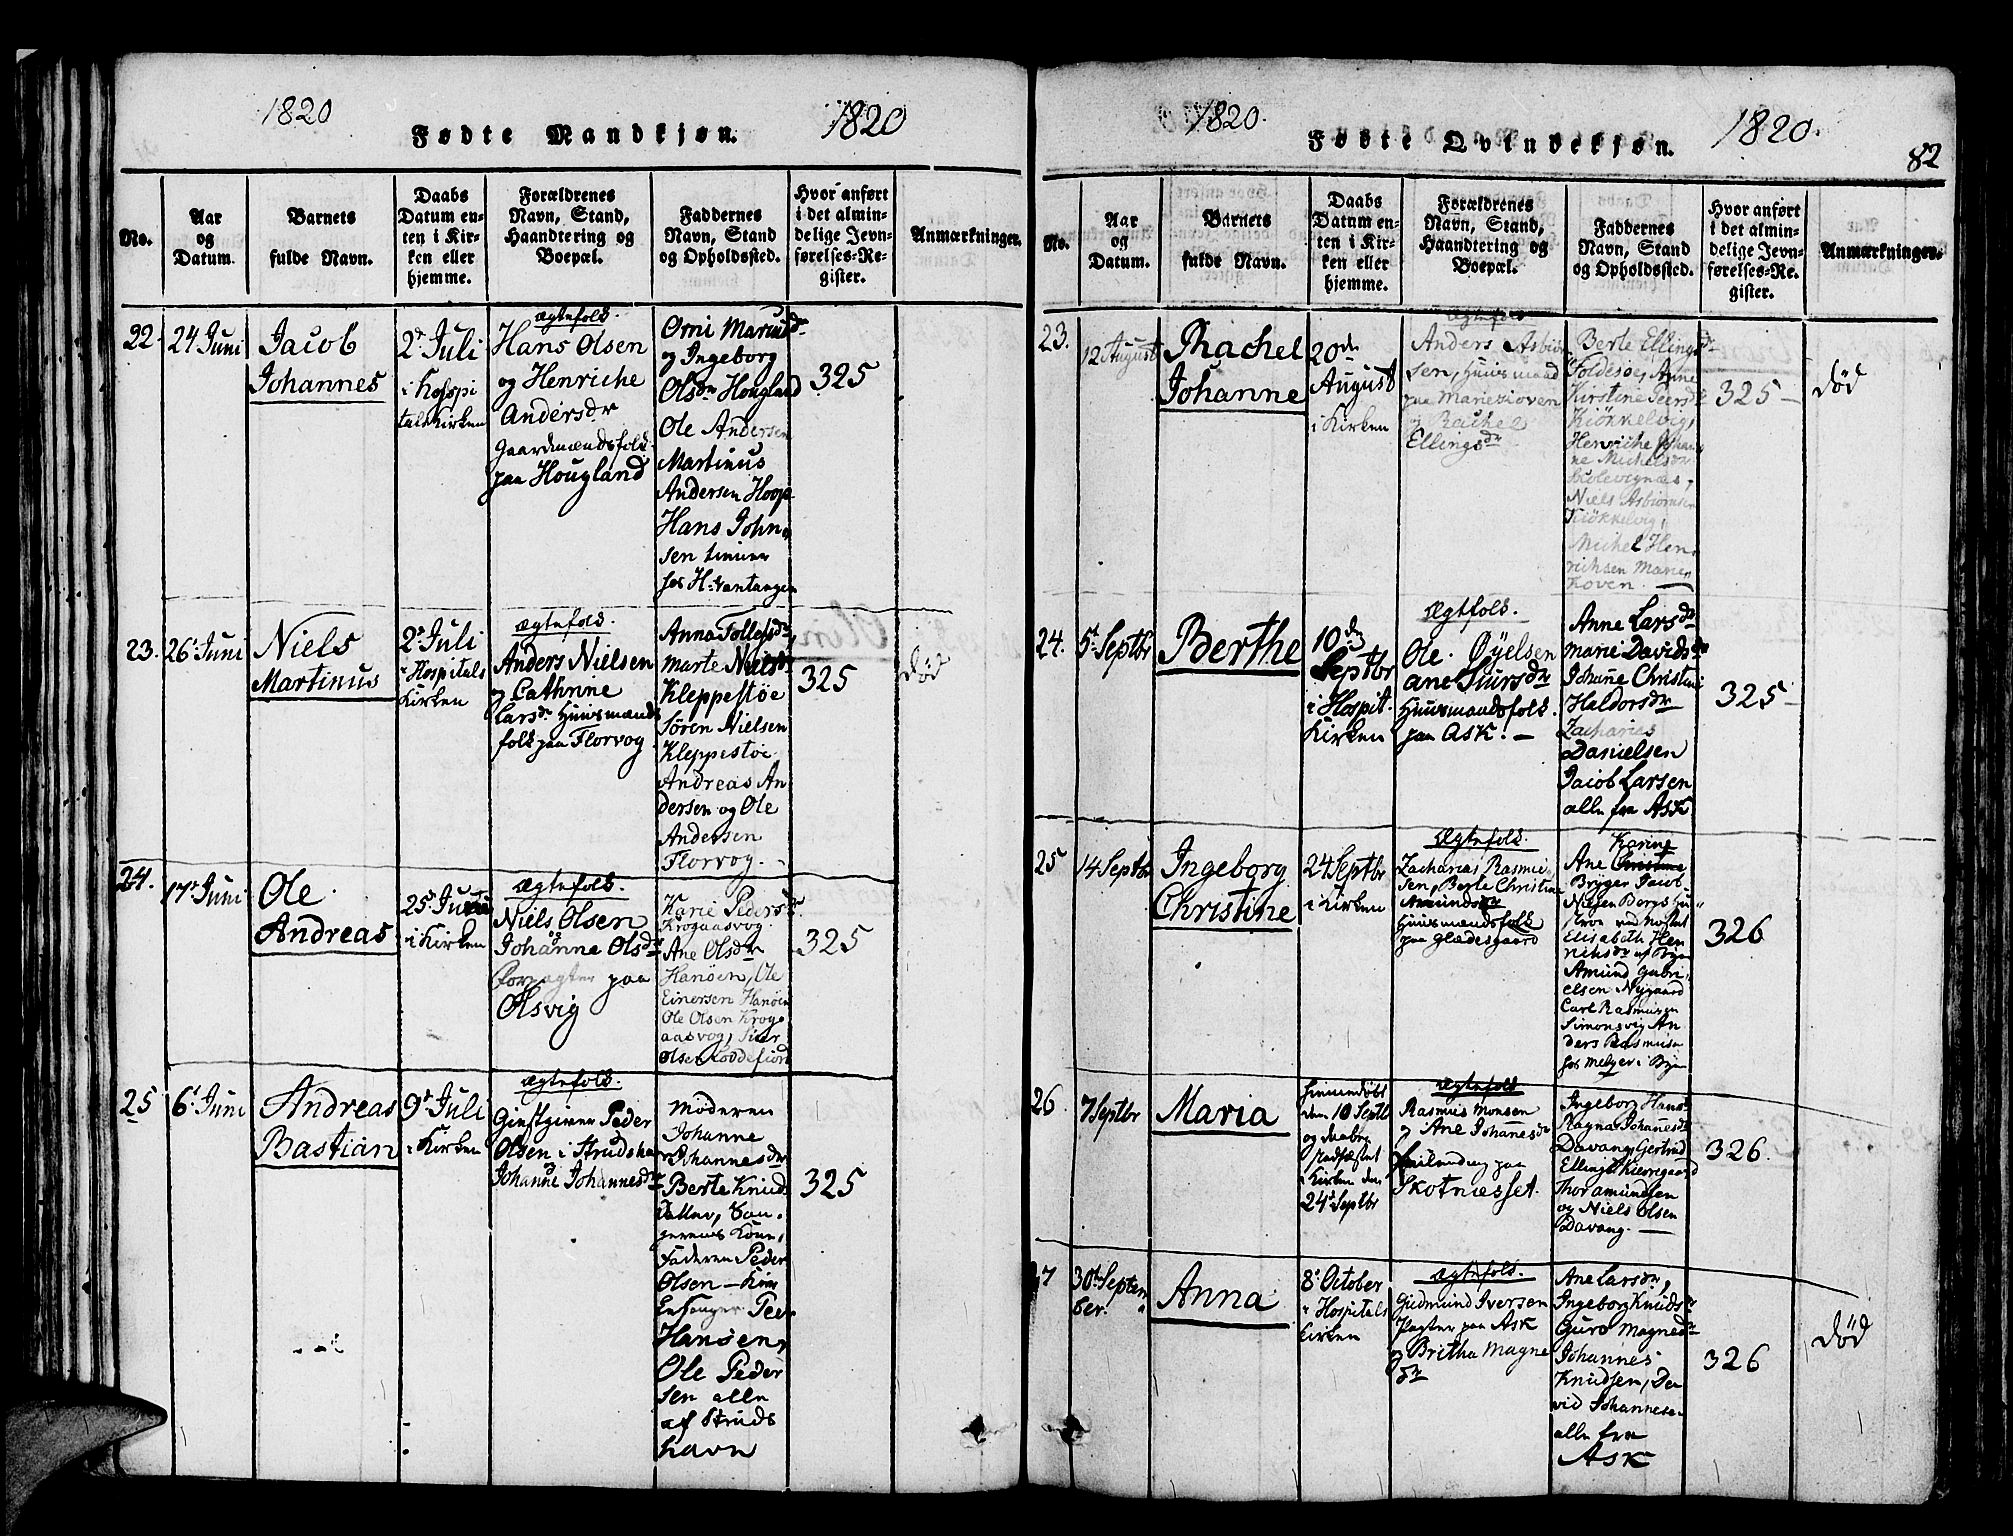 1820
Fødte Mandkjøn.
1820
No.
Aar
og
Datum.
Barnets
fulde Navn.
Daabs
Datum en-
ten i Kir-
ken eller
hjemme.
Forældrenes
Navn, Stand,
Haandtering og
Boepæl.
Faddernes
Navn, Stand
og Opholdssted.
Hvor anført
i det almin-
delige Jevn-
førelses-Re-
gister.
Anmærkninger.
22.
24 Juni
Jacob
Johannes
2d Juli
i Hospi
talskirken
Ægtefolk.
Hans Olsen
og Henriche
Andersdr
Gaardmændsfolk
paa Hougland
Orni Mariusdr
og Ingeborg
Olsdr Hougland
Ole Andersen
Martinus
Andersen Hoop
Hans John
sen tiener
hos H.
325
23.
26 Juni
Niels
Martinus
2d Juli
i Hospitals
Kirken
Ægtefolk.
Anders Nielsen
og Cathrine
Larsdr Huusmænds
folk paa Florvog
Anna Tollefsdr
Marte Nielsdr
Kleppestøe
Søren Nielsen
Kleppestøe
Andreas An
dersen og Ole
Andersen
Florvog.
325
død
24.
17 Juni
Ole
Andreas
25d Juni
i Kirken
Ægtefolk.
Niels Olsen
og
Johanne Olsdr
Forpagter paa
Olsvig
Karie Pedersdr
Krogaasvog
Ane Olsdr
Hanøen, Ole
Einersen Hanøen
Ole Olsen Krog
aasvog, Siur
Olsen Loddefiord
325
25
6d Juni
Andreas
Bastian
9d Juli
i Kirken
Ægtefolk.
Giestgiver Peder
Olsen i Strudshavn
og
Johanne Johannesdr
Moderen
Johanne
Johannesdr
Berte Knuds
datter, San-
gerens Kone,
Faderen Peder
Olsen
Peer
Hansen,
Ole Peder
sen alle
af Struds
havn
325
1820.
Fødte Qvindekjøn.
1820.
82
No.
Aar
og
Datum.
Barnets
fulde Navn.
Daabs
Datum en-
ten i Kir-
ken eller
hjemme.
Forældrenes
Navn, Stand,
Haandtering og
Boepæl.
Faddernes
Navn, Stand
og Opholdssted.
Hvor anført
i det almin-
delige Jevn-
førelses-Re-
gister.
Anmærkninger.
23.
12 August
Rachel
Johanne
20de
August
i Kirken
Ægtefolk
Anders Asbiørn
sen, Huusmand
paa Marieskoven
og Rachel
Ellingsdr
Berte Ellingsdr
Toldesøe, Anne
Kirstine Peersdr
Kiøkkelvig,
Henriche Johan
ne Michelsdr
Skolevignæs,
Niels Asbiørnsen
Kiøkkelvig,
Michel Hen
richsen Marie
koven
325
død
24.
5 Septbr
Berthe
10de
Septbr
i Hospit.
Kirken
Ægtfolk.
Ole Øyelsen
Ane Siursdr
Huusmandsfolk.
paa Ask.
Anne Larsdr
Marie Davidsdr
Johane Christine
Haldorsdr
Zacharies
Danielsen
Jacob Larsen
alle fra Ask
325
25
14 Septbr
Ingeborg
Christine
24 Septbr
i Kirken
Ægtefolk.
Zacharias Rasmus
sen, Berte Christine
Amundsdr
Huusmændsfolk
paa Glædesgaard
Karine
Ane Christine
Bryger Jacob
Nielsen Bergs Hu
stroe ved Nøstet
Elisabeth Hen
richsdr af Byen
Amund Gabri
elsen Nygaard
Carl Rasmusen
Simonsvig An
ders Rasmusen
hos Melyer i Byen
326
26
7 Septbr
Maria
Hiemmedøbt
den 10 Septbr
og daaben
stadfæstet
i Kirken den
24d Septbr
Ægtefolk
Rasmus Monsen
og Ane Johanesdr
paa
Skotnæsset.
Ingeborg Hansdr
Ragna Johanesdr
Davang, Gertrud
Ellingsdr Kierregaard
Thor Amundsen
og Niels Olsen
Davang.
326.
27
30te Septem
ber
Anna
8d October
i Hospitals
Kirken
Ægtefolk.
Gudmund Iversen
Pagter paa Ask
og Britha Magne
dr
Ane Larsdr,
Ingeborg Knudsdr
Guro Magnedr
Johannes
Knudsen, Da
vid Johannesen
alle fra
Ask
326
død